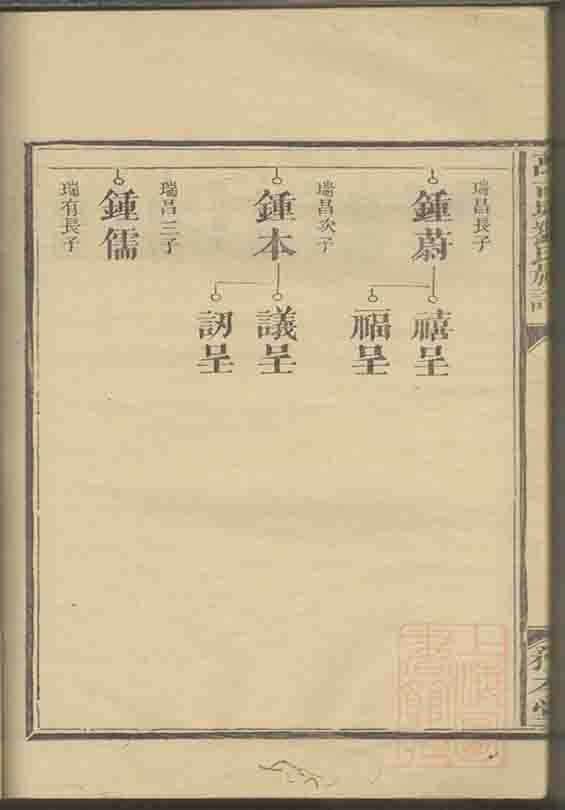 瑞昌長子
鍾蔚
禧呈
福呈
瑞昌次子
鍾本
議呈
訒呈
瑞昌三子
鍾儒
瑞有長子
氏族譜
本堂
上海圖
書館藏